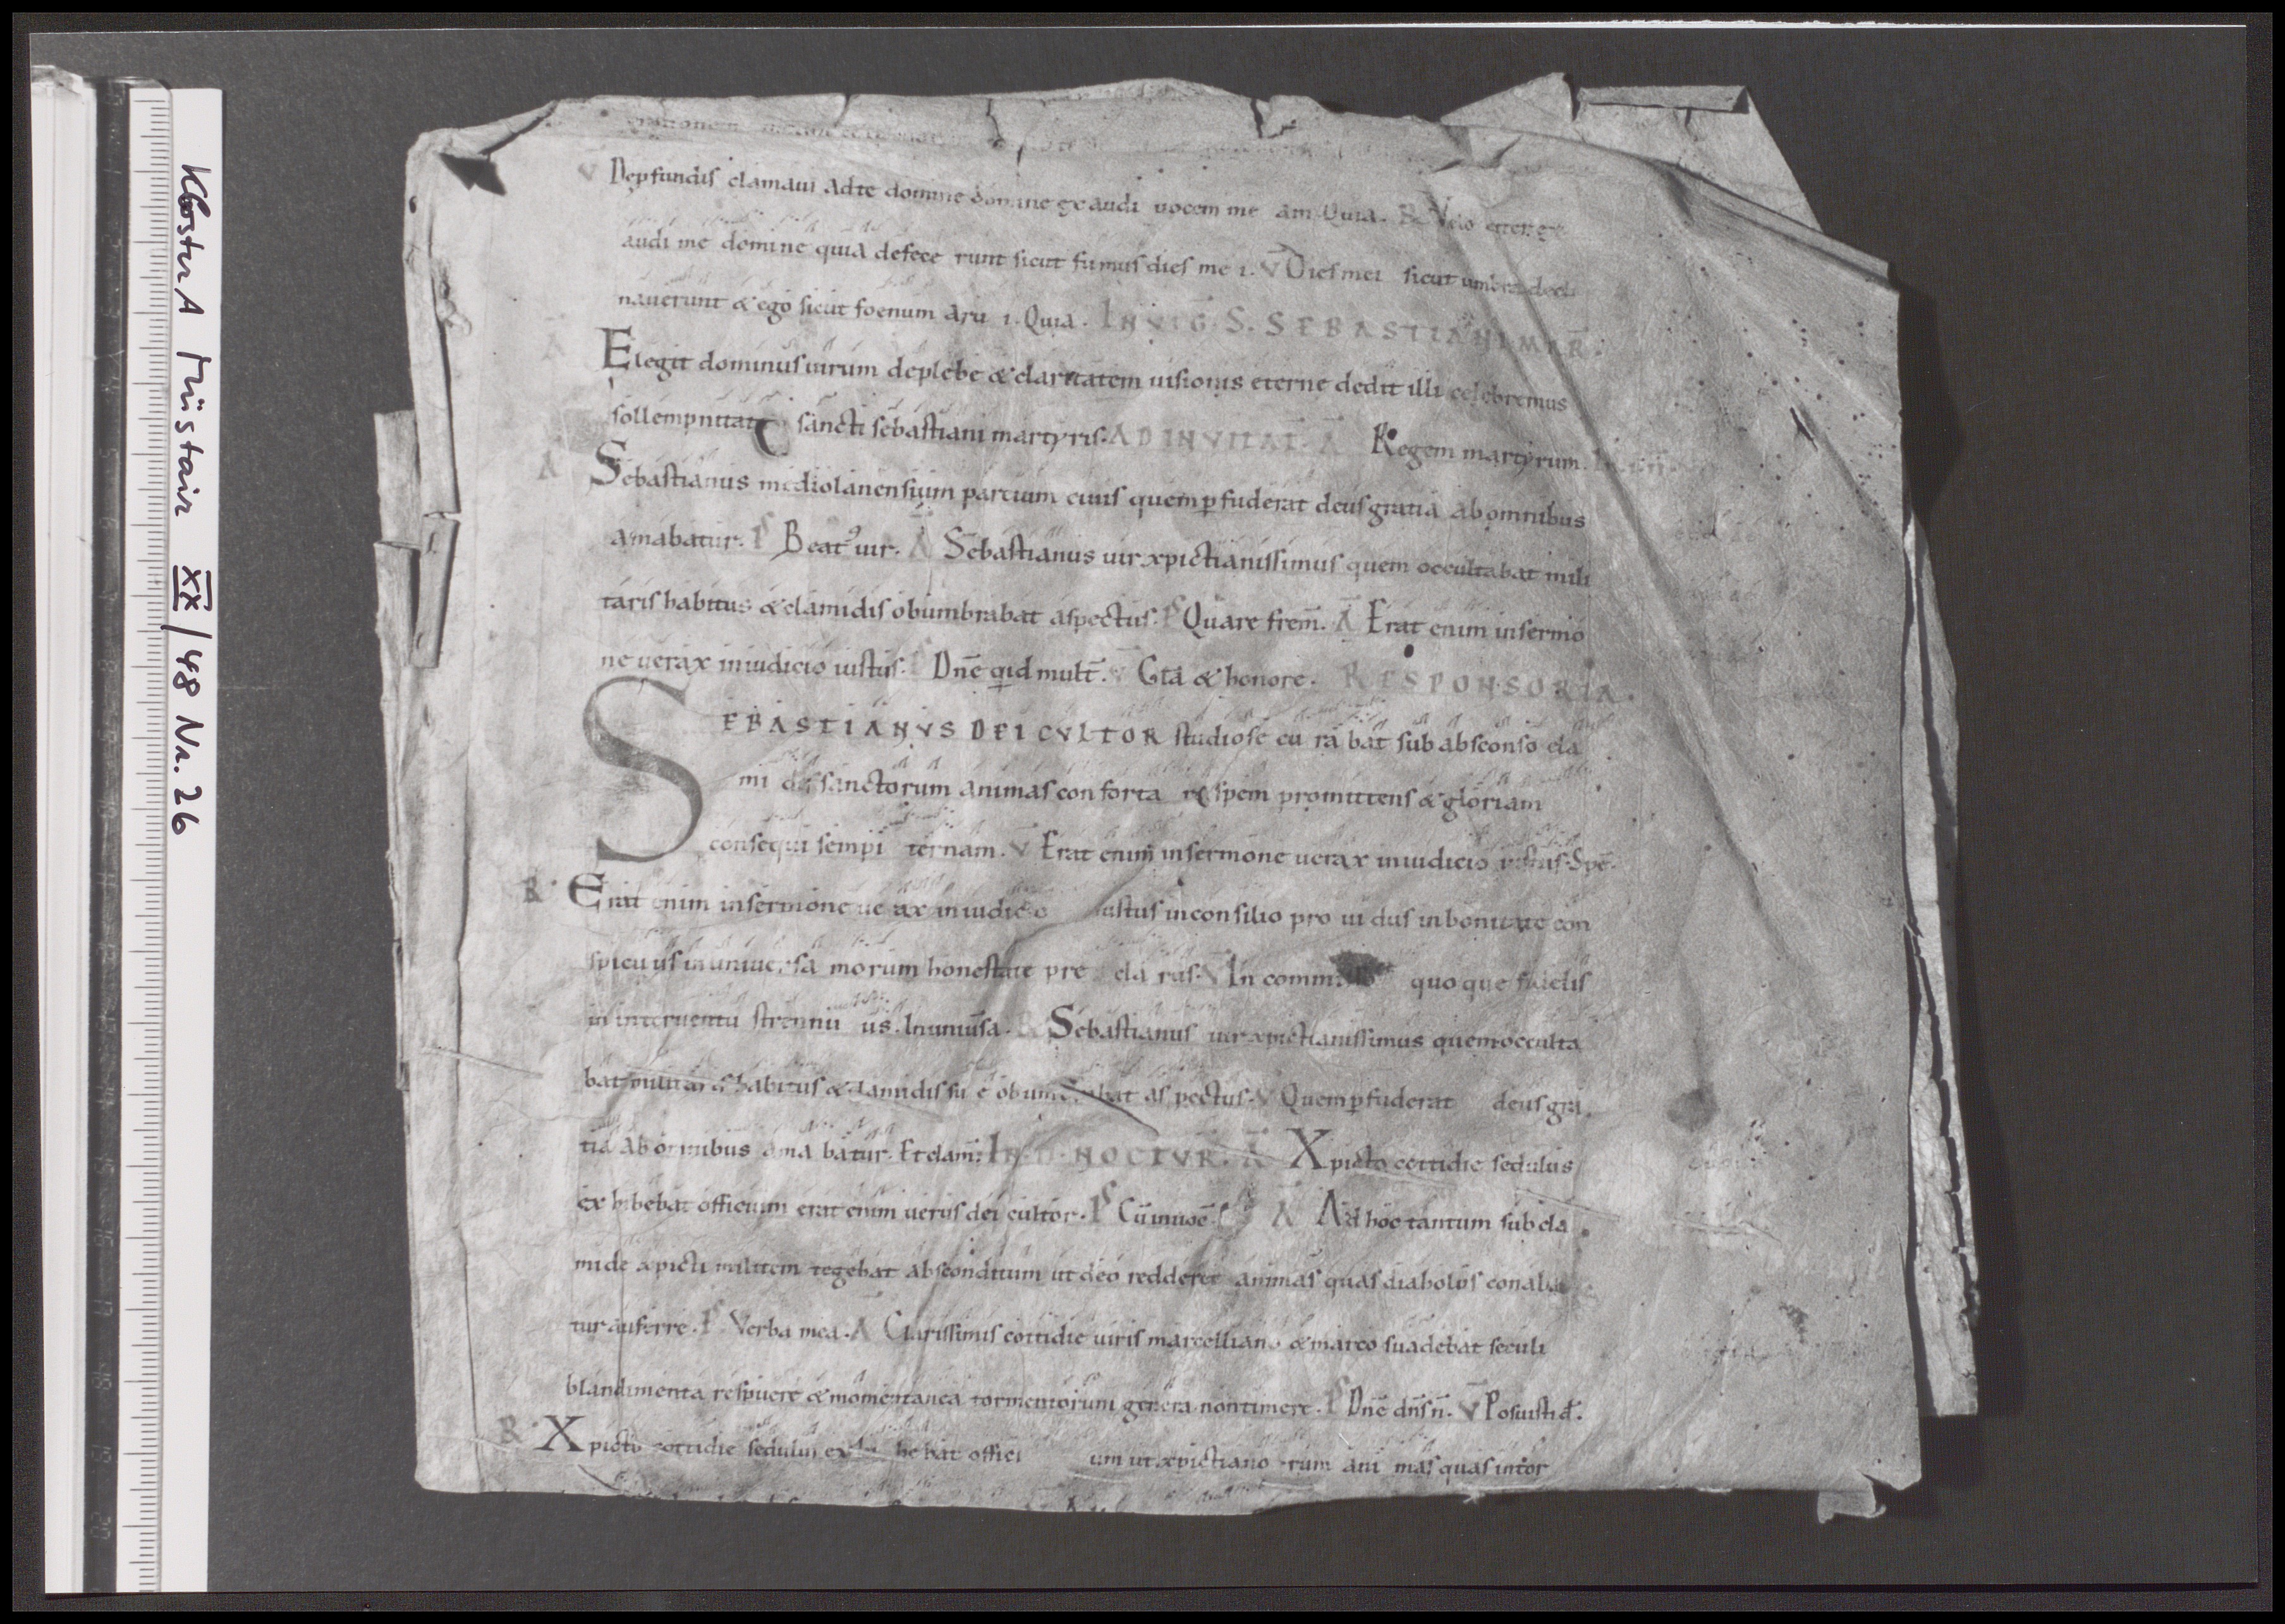 Kloster A Müstair XX/48 Nr. 26
V Dep fundis clamaui adte domine domine exaudi uocem me am Quia. R Velo
audi me domine quia defece runt sicut fumus dies me i. V Dies mei sicut umbra decli
nauerunt & ego sicut foenum aru i. Quia. IN VIG. S. SEBASTIANI MAR.
A Elegit dominus uirum deplebe & claritatem uisionis eterne dedit illi celebremus
sollempnitate sancti sebastiani martyris. AD INVITAT. A Regem martyrum.
A Sebastianus mediolanensium partium ciuis quem pfuderat deus gratia ab omnibus
amabatur. PS Beat' uir. A Sebastianus uir xpictianissimus quem occultabat mili
taris habitus & clamidis obumbrabat aspectus. PS Quare frem̄. A Erat enim insermo
ne uerax iniudicio iustus. Dn̄e qid mult̄. V Gl̄a & honore. RESPONSORIA.
SEBASTIANVS DEI CVLTOR studiose cu ra bat sub absconso cla
mi dis sanctorum animas con forta re spem promittens & gloriam
consequi sempi ternam. V Erat enim insermone uerax iniudicio iustus. Spē.
R. Erat enim insermone ue rax iniudicio iustus inconsilio pro ui dus inbonitate con
spicuus in uniuersa morum honestate pre cla rus. V In commisso quo que fidelis
in interuentu strennu us. Inuniūsa. R Sebastianus uir xpictianissimus quem occulta
bat militaris habitus & clamidis su e obumbrabat as pectus. V Quem pfuderat deus gra
tia ab omnibus ama batur. Et clam̄. IN II NOCTVR. A Xpicto cottidie sedulus
ex hibebat officium erat enim uerus dei cultor. PS Cū inuoc̄. A Ad hoc tantum sub cla
mide xpicti militem tegebat absconditum ut deo redderet animas quas diabolus conaba
tur auferre. PS Verba mea. A Clarissimis cottidie uiris marcelliano & marco suadebat seculi
blandimenta respuere & momentanea tormentorum genera non timere. PS Dn̄e dn̄s n̄. V Posuisti d̄.
R. Xpicto cottidie sedulus exhi bebat offici um ut xpictiano rum ani mas quas inter